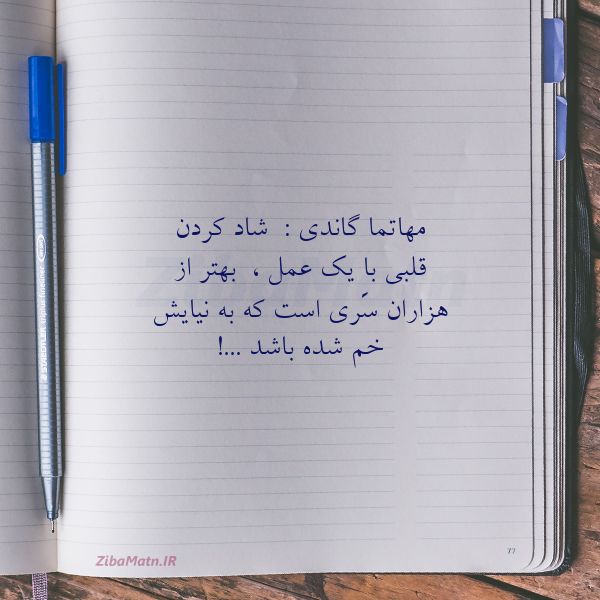 مهاتما گاندی : شاد کردن
قلبی با یک عمل ، بهتر از
هزاران سَری است که به نیایش
خم شده باشد ...!
ZibaMatn.IR